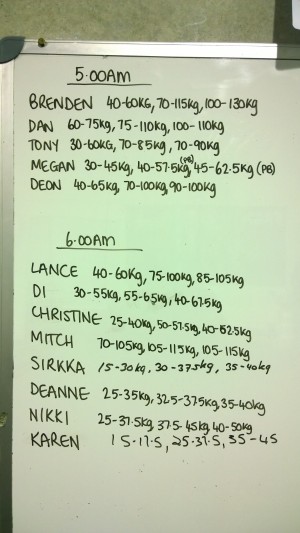 5.00AM
BRENDEN 40-60KG, 70-115Kg, 100-130Kg
DAN 60-75Kg, 75-110Kg, 100-110Kg
TONY 30-60KG, 70-85Kg, 70-90Kg
MEGAN 30-45Kg, 40-57.5Kg (PB), 45-62.5Kg (PB)
DEON 40-65Kg, 70-100Kg, 90-100Kg
6.00AM
LANCE 40-60Kg, 75-100Kg, 85-105Kg
DI 30-55Kg, 55-65Kg, 40-67.5Kg
CHRISTINE 25-40Kg, 50-57.5Kg, 40-62.5Kg
MITCH 70-105Kg, 105-115Kg, 105-115Kg
SIRKKA 15-30kg, 30-37.5kg, 35-40kg
DEANNE 25-35Kg, 32.5-37.5Kg, 35-40Kg
NIKKI 25-37.5Kg, 37.5-45Kg, 40-50Kg
KAREN 15-17.5, 25-37.5, 35-45